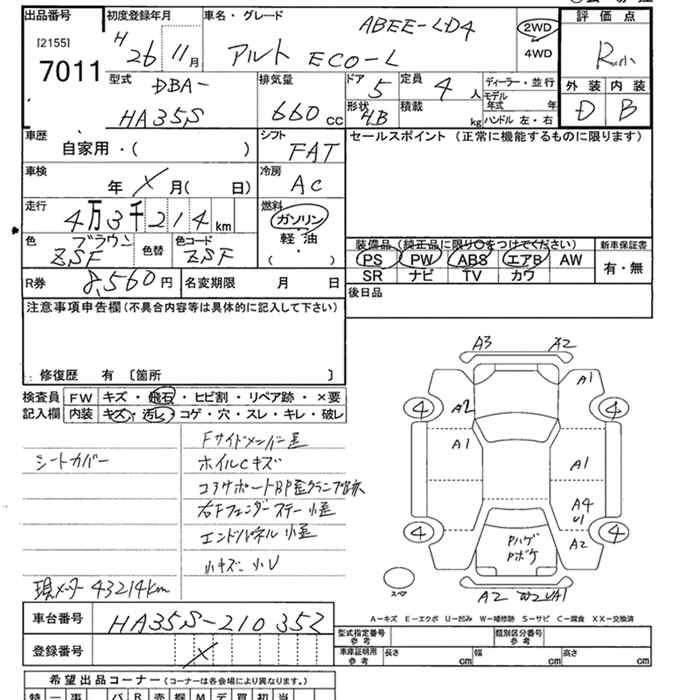 出品番号
[2155]
7011
初度登録年月
H 26 11 月
車名・グレード
ABEE-LD4
アルト ECO-L
2WD
4WD
評価点
R
外装 内装
D B
型式
DBA-
HA35S
排気量
660 cc
ドア
5
形状
4B
定員
4 人
積載
kg
ディーラー・並行
モデル年式 年
ハンドル 左・右
車歴
自家用・( )
シフト
FAT
セールスポイント (正常に機能するものに限ります)
車検
年 X 月( 日)
冷房
AC
走行
4万3千214km
燃料
ガソリン
軽油
( ・ )
色
ブラウン
ZSF
色替
色コード
ZSF
装備品 (純正品に限り○をつけてください)
新車保証書
PS PW ABS エアB AW
SR ナビ TV カワ
有・無
R券 8,560 円
名変期限 月 日
後日品
注意事項申告欄(不具合内容等は具体的に記入して下さい)
修復歴 有 〔箇所 〕
検査員記入欄
FW キズ・飛石・ヒビ割・リペア跡・×要
内装 キズ・汚レ・コゲ・穴・スレ・キレ・破レ
シートカバー
現メーター 43214km
Fサイドメンバー歪
ホイルCキズ
コアサポートBP歪クランプ跡
右Fフェンダーステー小歪
エンドパネル小歪
小キズ 小U
A3 A2
A1
4 A2 4
A1 A1
A4
U1
4 A2 4
Pハゲ
Pボケ
スペア
A2 W2UA1
A-キズ E-エクボ U-凹み W-補修跡 S-サビ C-腐食 XX-交換済
車台番号 HA35S-210352
登録番号 X
型式指定番号 参考
類別区分番号 参考
車庫証明用 参考
長さ cm 幅 cm 高さ cm
希望出品コーナー (コーナーは各会場により異なります。)